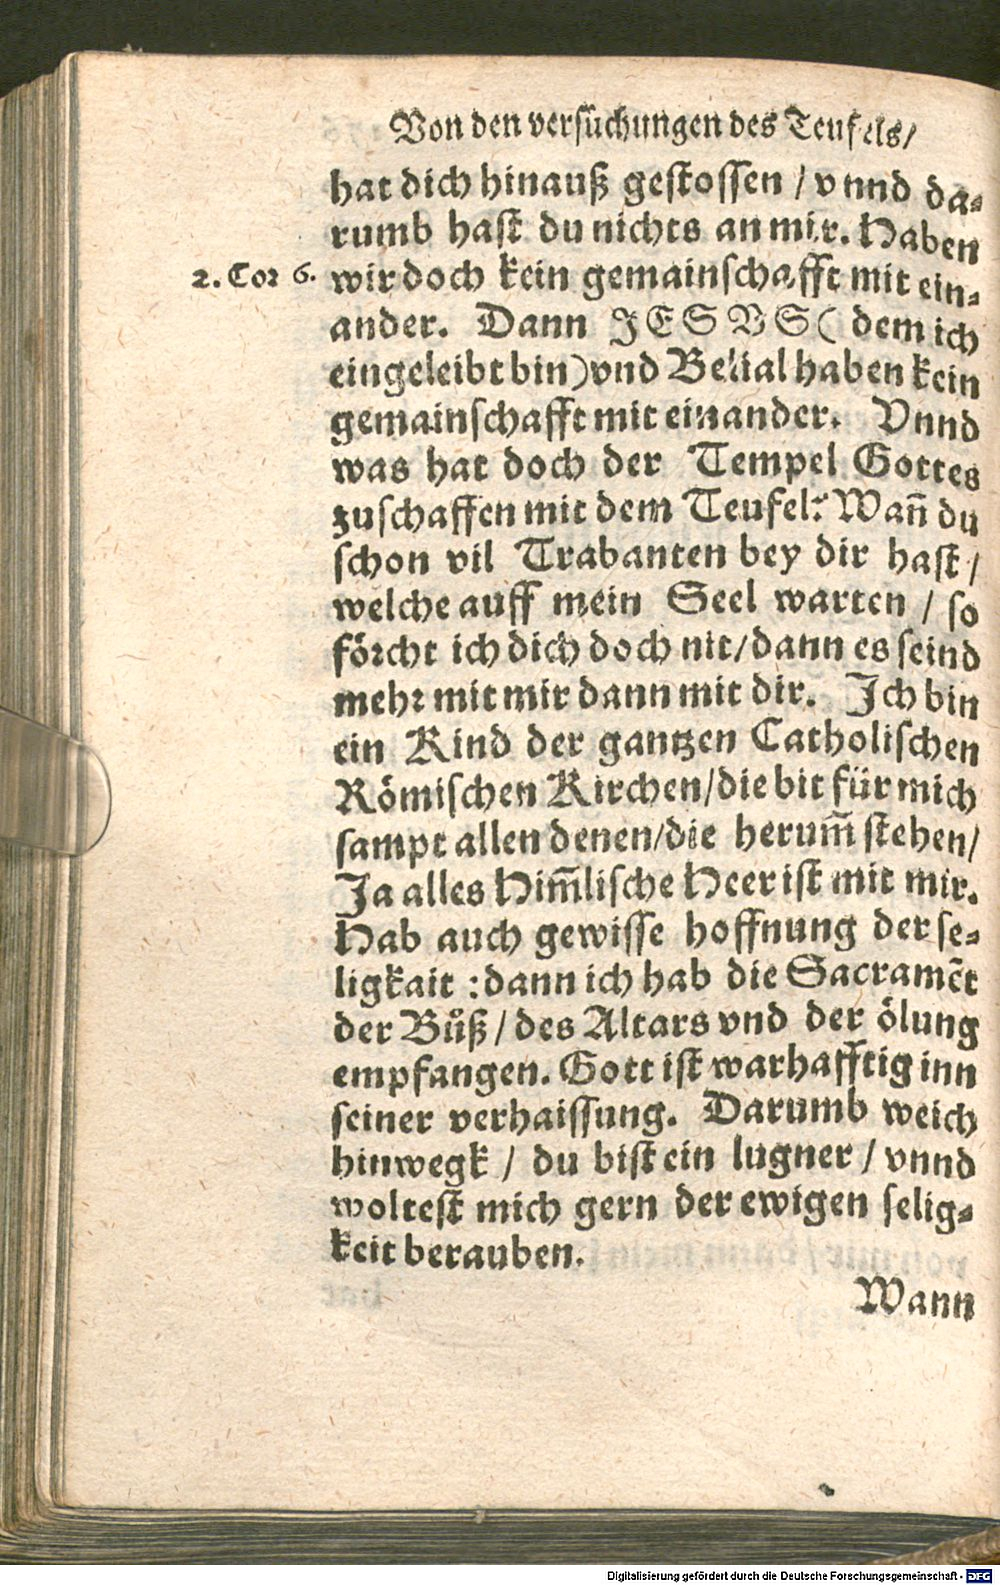 Von den versuchungen des Teufels/
hat dich hinauß gestossen / vnnd da-
rumb hast du nichts an mir. Haben
2. Cor 6. wir doch kein gemainschafft mit ein-
ander. Dann JESVS ( dem ich
eingeleibt bin) vnd Belial haben kein
gemainschafft mit einander. Vnnd
was hat doch der Tempel Gottes
zuschaffen mit dem Teufel? Wañ du
schon vil Trabanten bey dir hast /
welche auff mein Seel warten / so
förcht ich dich doch nit/ dann es seind
mehr mit mir dann mit dir. Ich bin
ein Kind der gantzen Catholischen
Römischen Kirchen/ die bit für mich
sampt allen denen/ die herum̃ stehen/
Ja alles Him̃lische Heer ist mit mir.
Hab auch gewisse hoffnung der se-
ligkait : dann ich hab die Sacramẽt
der Bůß / des Altars vnd der ölung
empfangen. Gott ist warhafftig inn
seiner verhaissung. Darumb weich
hinwegk / du bist ein lugner / vnnd
woltest mich gern der ewigen selig-
keit berauben.
Wann
Digitalisierung gefördert durch die Deutsche Forschungsgemeinschaft - DFG